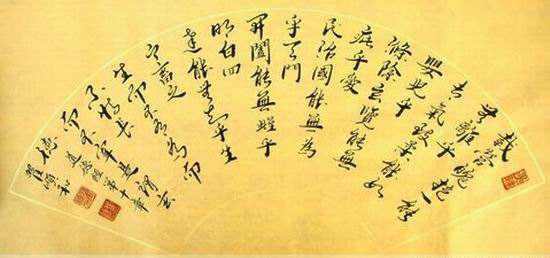 載營魄抱一能
無離乎
專氣致柔能如
嬰兒乎
滌除玄覽能無
疵乎愛
民治國能無為
乎天門
開闔能無雌乎
明白四
達能無知乎生
之畜之
生而不有為而
不恃長
而不宰是謂玄
德
道德經第十章
翟順和